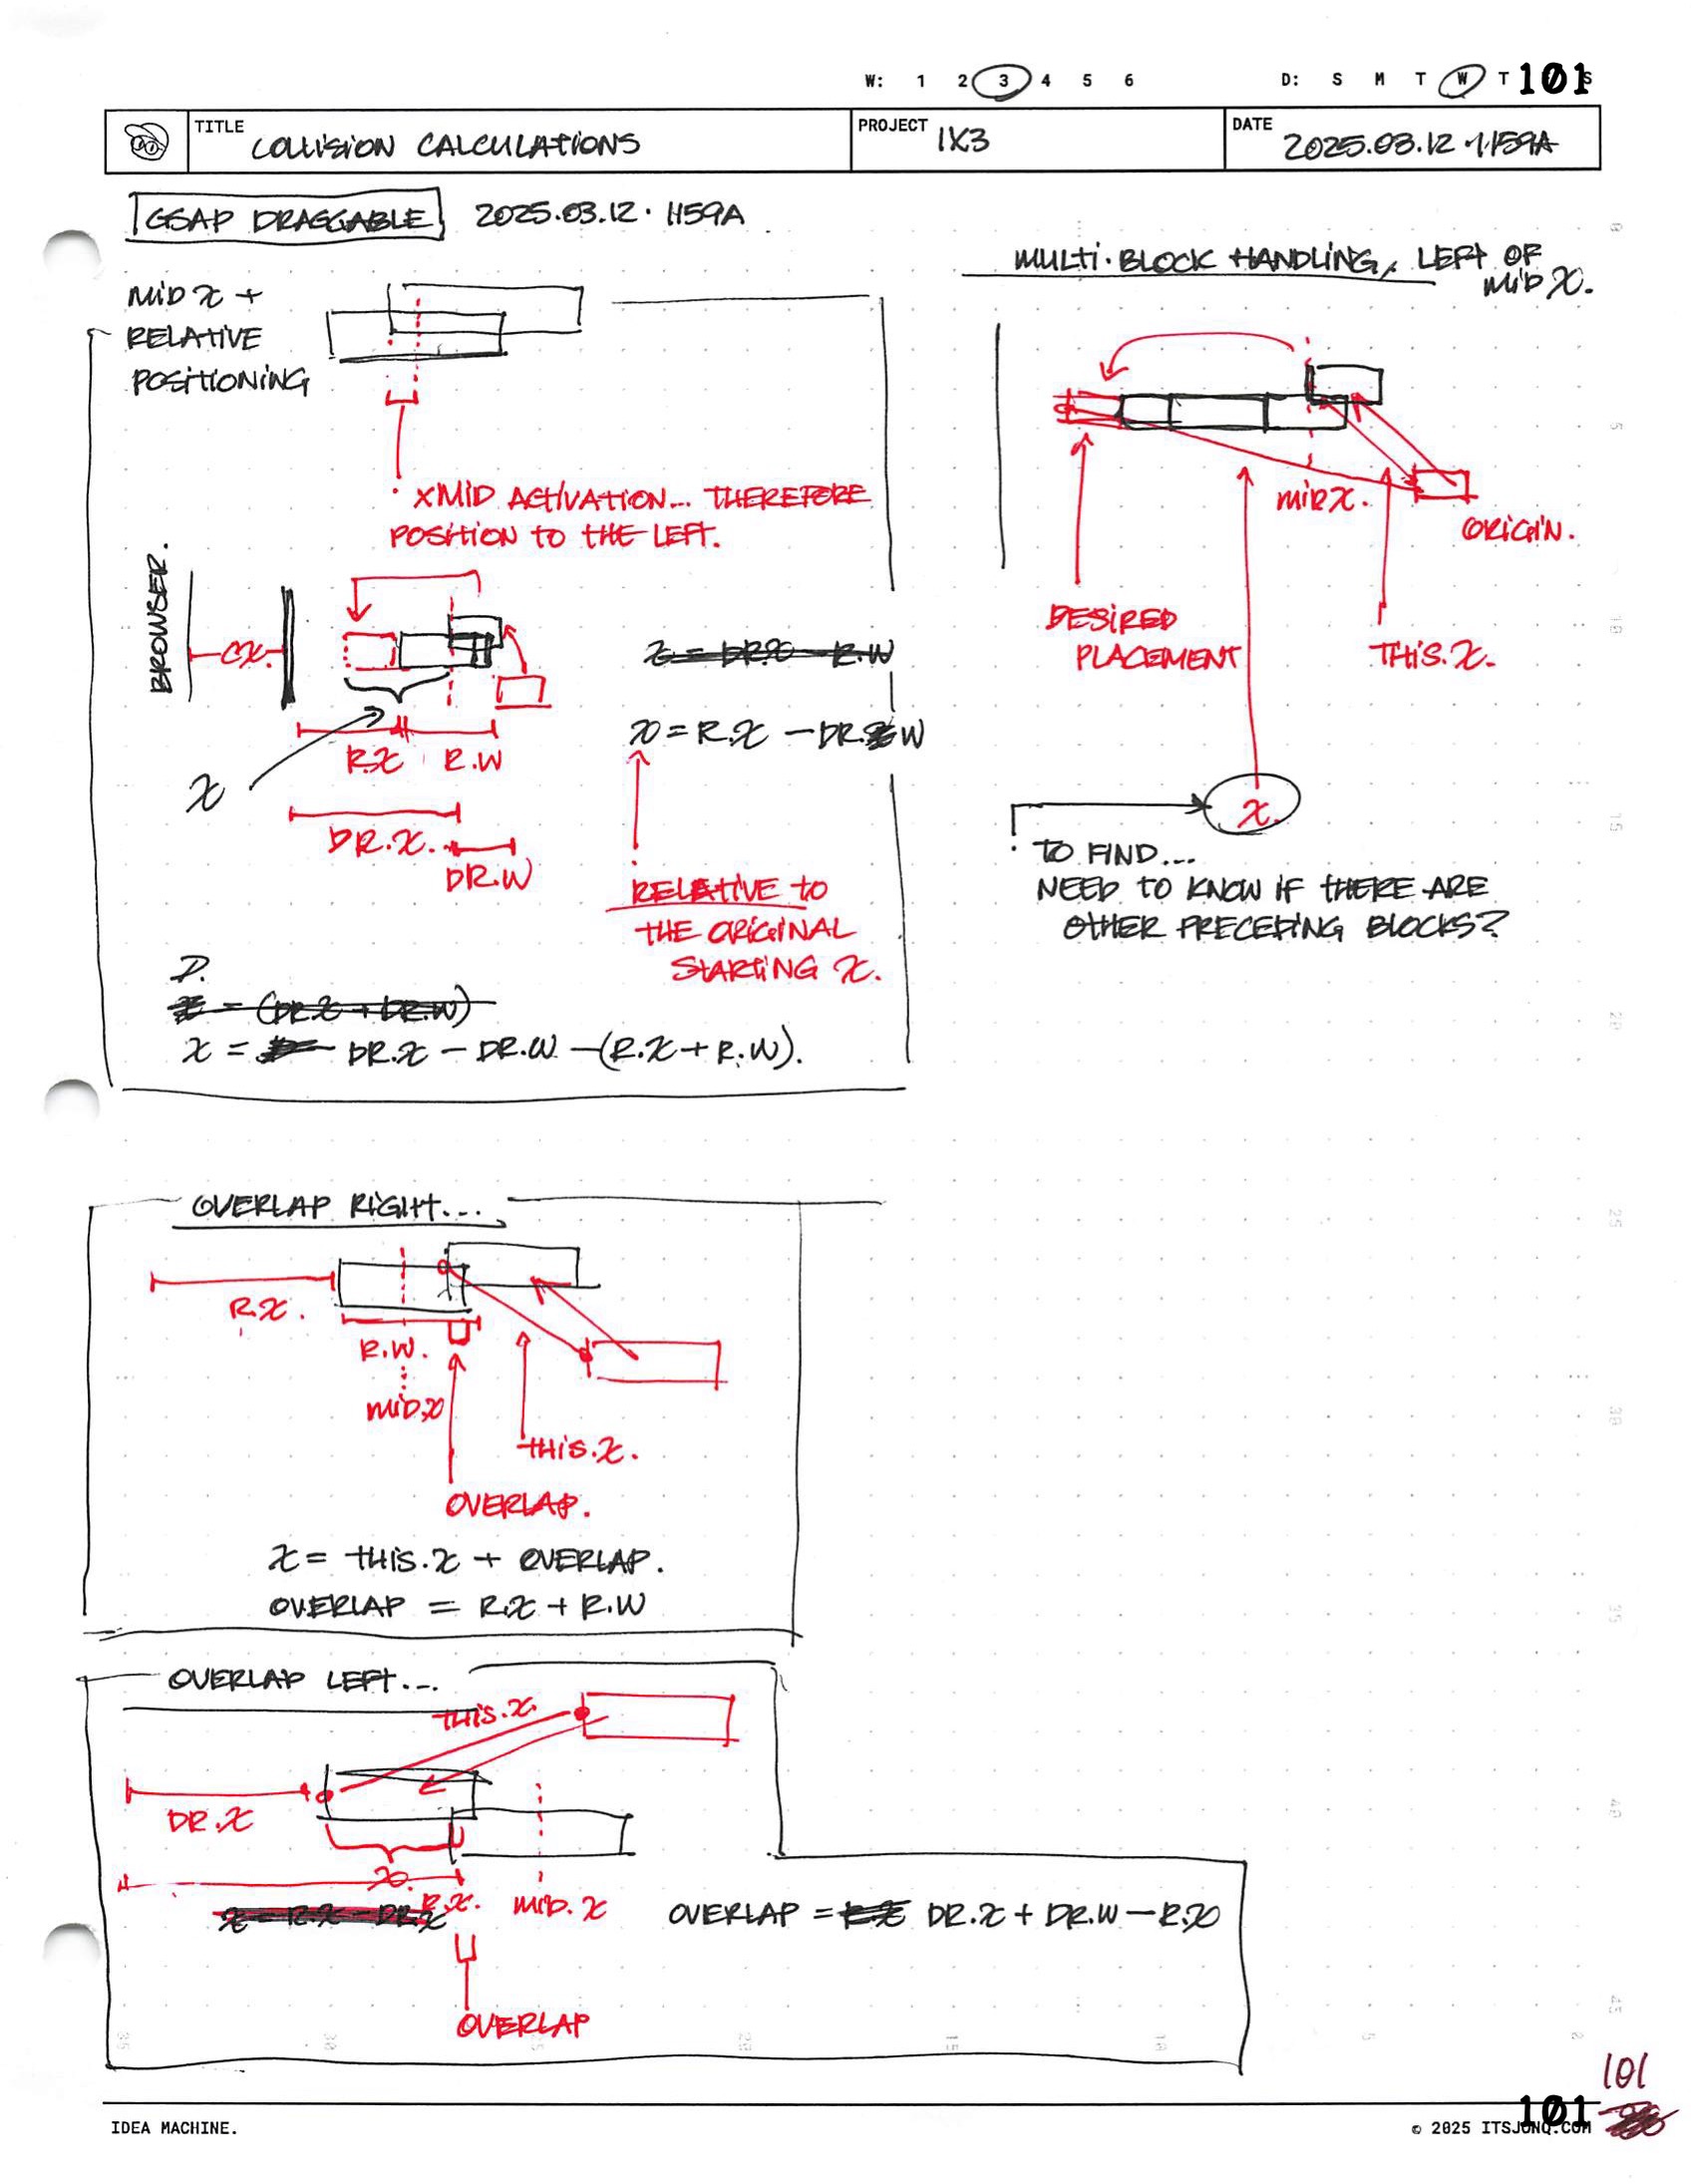 W: 1 2 3 4 5 6
D: S M T W T S
101
TITLE COLLISION CALCULATIONS
PROJECT 1X3
DATE 2025.03.12 · 1159A
GSAP DRAGGABLE 2025.03.12 · 1159A
MID X +
RELATIVE
POSITIONING
· XMID ACTIVATION... THEREFORE
POSITION TO THE LEFT.
BROWSER.
CX.
R.X R.W
X
DR.X.
DR.W
X = DR.X - R.W
X = R.X - DR.W
RELATIVE TO
THE ORIGINAL
STARTING X.
D.
X = (DR.X + DR.W)
X = DR.X - DR.W - (R.X + R.W).
MULTI · BLOCK HANDLING, LEFT OF
MID X.
MID X.
ORIGIN.
DESIRED
PLACEMENT
THIS.X.
X.
· TO FIND...
NEED TO KNOW IF THERE ARE
OTHER PRECEDING BLOCKS?
OVERLAP RIGHT...
R.X.
R.W.
MID.X
THIS.X.
OVERLAP.
X = THIS.X + OVERLAP.
OVERLAP = R.X + R.W
OVERLAP LEFT...
THIS.X.
DR.X
X.
R.X.
MID.X
X = R.X - DR.X
OVERLAP = DR.X + DR.W - R.X
OVERLAP
0
5
10
15
20
25
30
35
40
45
35 30 25 20 15 10 5 0
101
IDEA MACHINE.
101
© 2025 ITSJONQ.COM